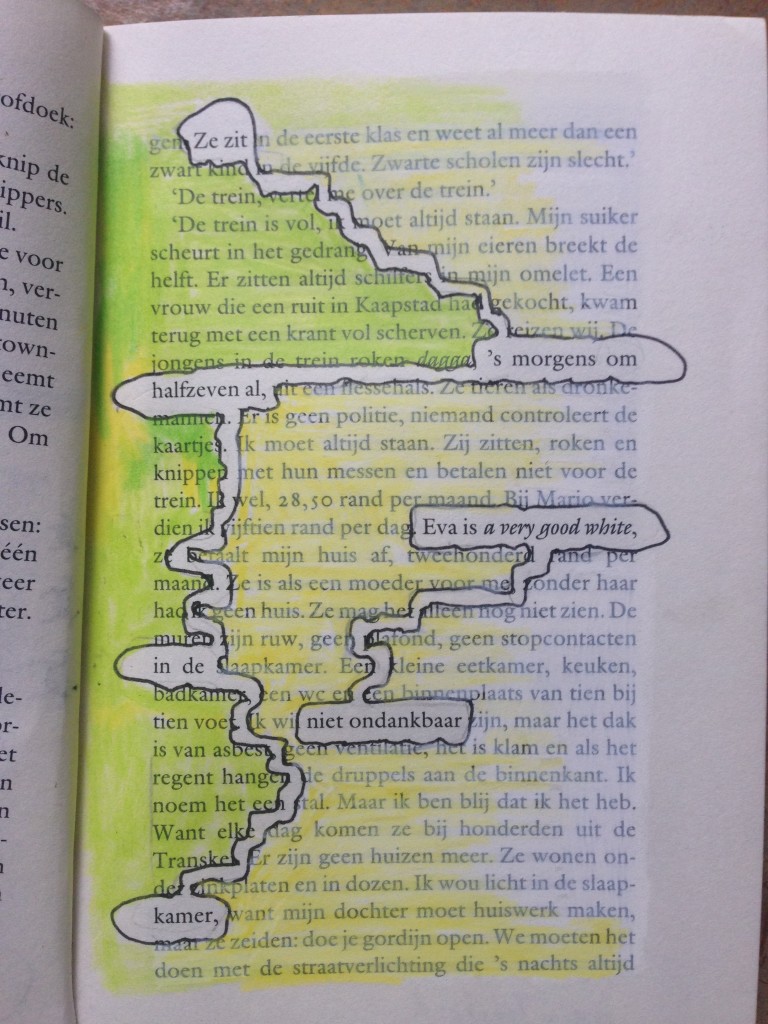 ofdoek:
knip de
ippers.
il.
e voor
n, ver-
nuten
own-
eemt
mt ze
Om
sen:
één
veer
ter.
le-
or-
et
n
n
-
gen Ze zit in de eerste klas en weet al meer dan een
zwart kind in de vijfde. Zwarte scholen zijn slecht.’
‘De trein, vertel me over de trein.’
‘De trein is vol, ik moet altijd staan. Mijn suiker
scheurt in het gedrang. Van mijn eieren breekt de
helft. Er zitten altijd schilfers in mijn omelet. Een
vrouw die een ruit in Kaapstad had gekocht, kwam
terug met een krant vol scherven. Zo reizen wij. De
jongens in de trein roken dagga, ’s morgens om
halfzeven al, uit een flessehals. Ze tieren als dronke-
mannen. Er is geen politie, niemand controleert de
kaartjes. Ik moet altijd staan. Zij zitten, roken en
knippen met hun messen en betalen niet voor de
trein. Ik wel, 28,50 rand per maand. Bij Mario ver-
dien ik vijftien rand per dag. Eva is a very good white,
ze betaalt mijn huis af, tweehonderd rand per
maand. Ze is als een moeder voor me, zonder haar
had ik geen huis. Ze mag het alleen nog niet zien. De
muren zijn ruw, geen plafond, geen stopcontacten
in de slaapkamer. Een kleine eetkamer, keuken,
badkamer, een wc en een binnenplaats van tien bij
tien voet. Ik wil niet ondankbaar zijn, maar het dak
is van asbest, geen ventilatie, het is klam en als het
regent hangen de druppels aan de binnenkant. Ik
noem het een stal. Maar ik ben blij dat ik het heb.
Want elke dag komen ze bij honderden uit de
Transkei. Er zijn geen huizen meer. Ze wonen on-
der zinkplaten en in dozen. Ik wou licht in de slaap-
kamer, want mijn dochter moet huiswerk maken,
maar ze zeiden: doe je gordijn open. We moeten het
doen met de straatverlichting die ’s nachts altijd